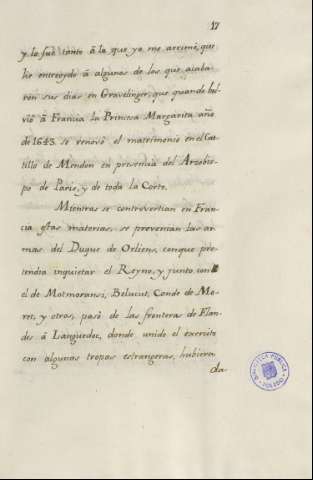 17
y lo fuè tanto â la que yo me arrimè, que
he entreoydo â algunos de los que acaba-
ron sus dias en Gravelingas, que quando bol-
viò â Francia la Princesa Margarita año
de 1643. se renovò el matrimonio en el Cas-
tillo de Mendon en presencia del Arzobis-
po de Paris, y de toda la Corte.
Mientras se controvertian en Fran-
cia estas materias, se prevenian las ar-
mas del Duque de Orliens, con que pre-
tendia inquietar el Reyno, y junto con
el de Motmoransi, Belucut, Conde de Mo-
ret, y otros, pasò de las fronteras de Flan-
des â Languedoc, donde unido el exercito
con algunas tropas estrangeras, hubiera
da-
BIBLIOTECA PUBLICA
TOLEDO